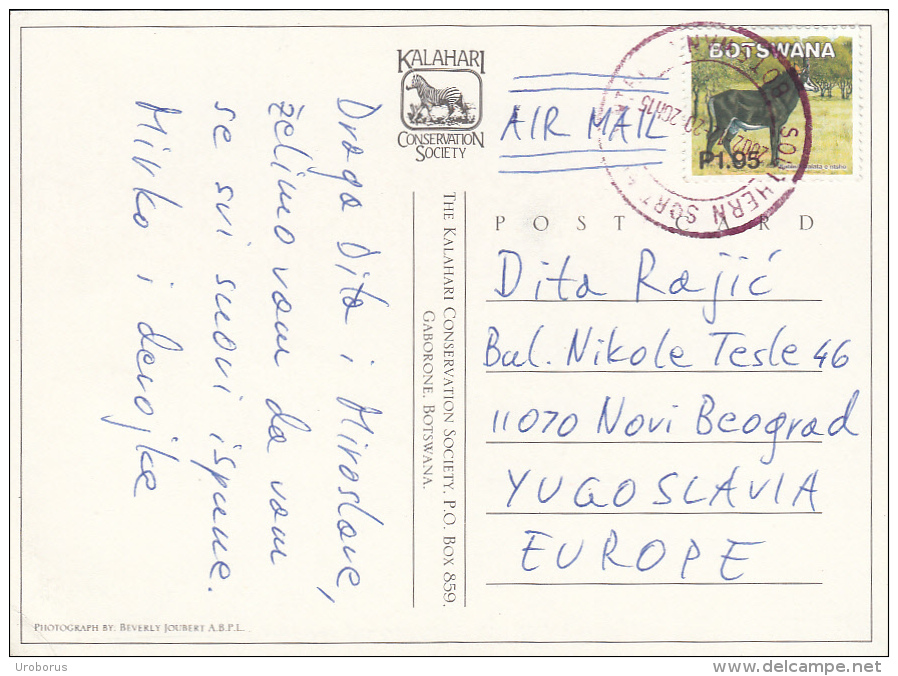 KALAHARI
CONSERVATION
SOCIETY
AIR MAIL
BOTSWANA
P1.95
POST CARD
Draga Dita i Miroslave,
želimo vam da vam
se svi snovi ispune.
Mirko i devojke
THE KALAHARI CONSERVATION SOCIETY, P.O. BOX 859,
GABORONE, BOTSWANA.
Dita Rajić
Bul. Nikole Tesle 46
11070 Novi Beograd
YUGOSLAVIA
EUROPE
PHOTOGRAPH BY: BEVERLY JOUBERT A.B.P.L.
Uroborus
delcampe.net